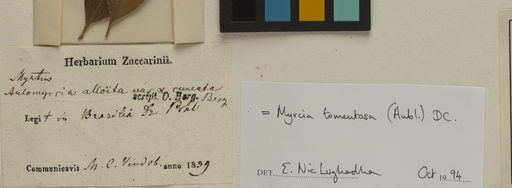 Herbarium Zuccarinii.
Myrtus
Aulomyrcia alloïta var. α cuneata
scrips. O. Berg. Berg
Legit in Brasilia Dr Pohl
Communicavit M. C. Vindob. anno 1839
= Myrcia tomentosa (Aubl.) DC.
DET. E. Nic Lughadha Oct 1994